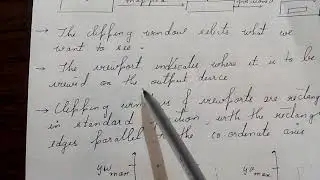 mapped
→ The clipping window selects what we
want to see.
→ The viewport indicates where it is to be
viewed on the output device
→ Clipping windows & viewports are rectang
in standard position, with the rectang
edges parallel to the co-ordinate axis
yw max
yv max